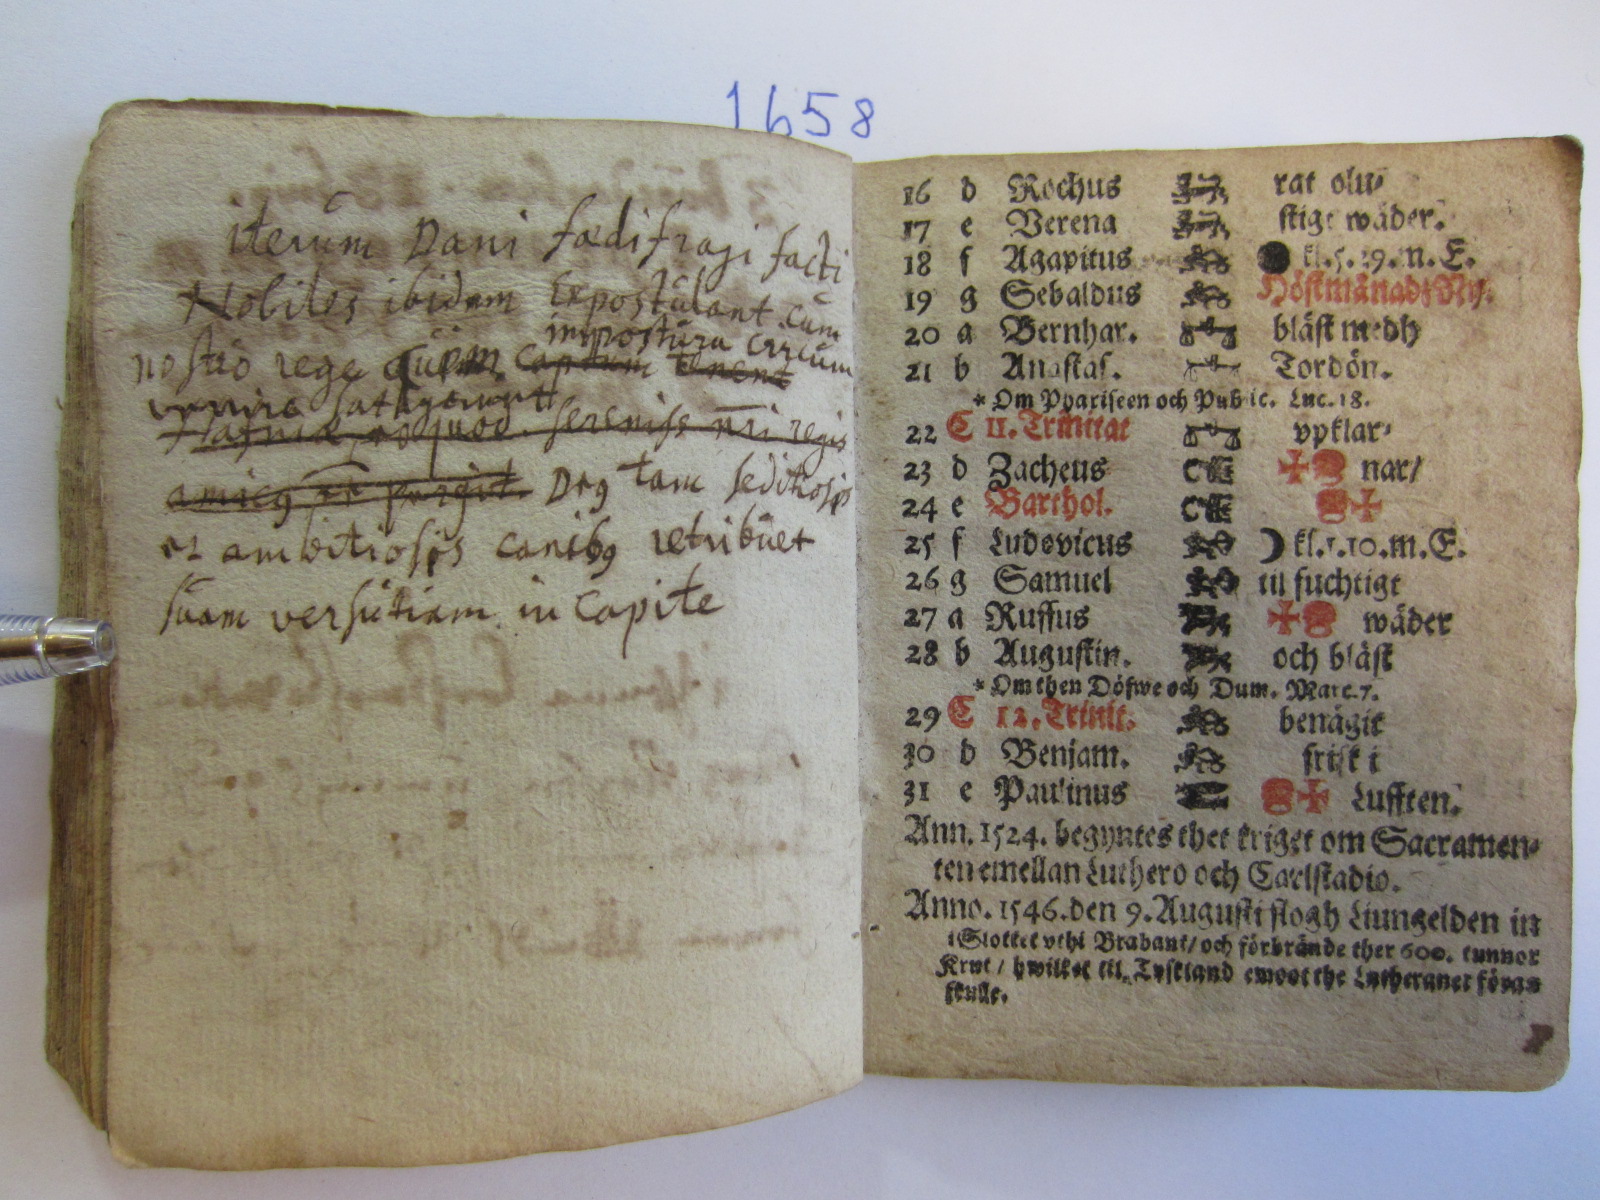 1658
iterum Dani fœdifragi facti
Nobiles ibidem Expostulant cum
impostura circum
nostro rege quem captum tenent
venire satagerunt
Hafniæ, eo quod sereniss nri regis
amicus
Deus tam seditiosis
et ambitiosis canibus retribuet
suam versutiam in capite
16 d Rochus rat olu-
17 e Verena stigt wäder.
18 f Agapitus kl.5.29.m.E.
19 g Sebaldus Höstmånadz Ny.
20 a Bernhar. bläst medh
21 b Anastas. Tordön.
* Om Phariseen och Public. Luc. 18.
22 C 11. Trinitat vpklar-
23 d Zacheus nar/
24 e Barthol.
25 f Ludovicus kl.1.10.m.E.
26 g Samuel til fuchtigt
27 a Ruffus wäder
28 b Augustin. och bläst
* Om then Döfwe och Dum. Marc. 7.
29 C 12. Trinit. benägit
30 d Benjam. frisk i
31 e Paulinus Lufften.
Ann. 1524. begyntes thet kriget om Sacramen-
ten emellan Luthero och Carlstadio.
Anno. 1546. den 9. Augusti slogh Liungelden in
i Slottet vthi Brabant/ och förbrände ther 600. tunnor
Krut / hwilket til Tyskland emoot the Lutheraner föras
skulle.